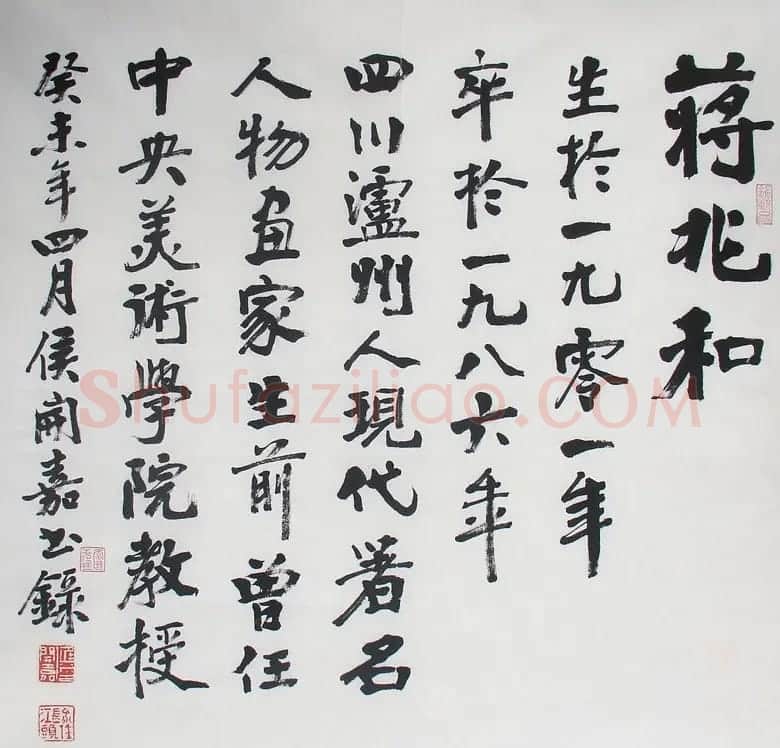 蔣兆和
生於一九零一年
卒於一九八六年
四川瀘州人現代著名
人物画家生前曾任
中央美術學院教授
癸未年四月侯開嘉书錄
Shufaziliao.COM